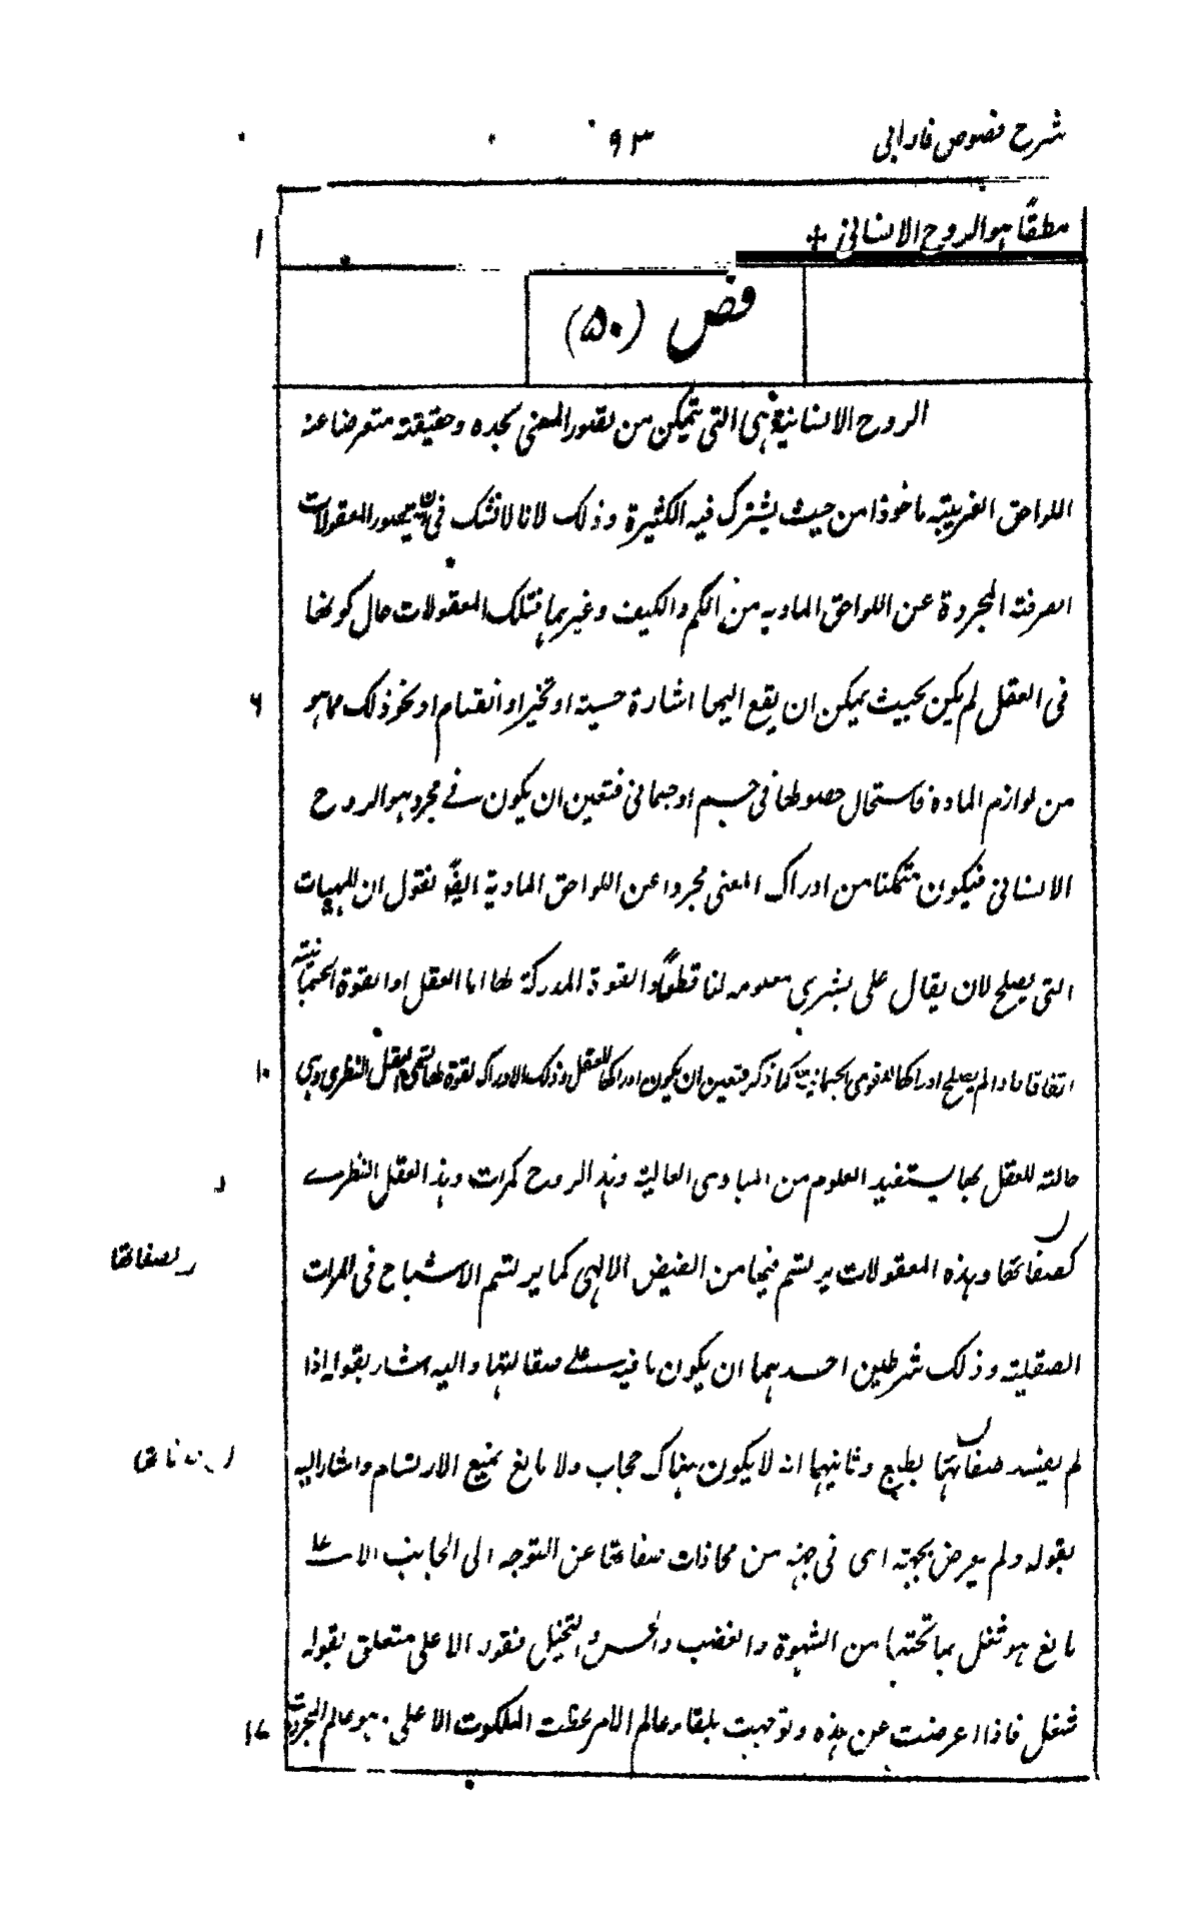 شرح فصوص فارابی
۹۳
مطلقًا ہو الروح الانسانی
۱
فص (۵۰)
الروح الانسانیۃ ہی التی تتمکن من تصور المعنی بحدہ وحقیقتہ متعرضا عنہ
اللواحق الغریبۃ ماخوذا من حیث یشترک فیہ الکثیرۃ وذلک لانا لا نشک فی انہ یتصور المعقولات
الصرفۃ المجردۃ عن اللواحق المادیہ من الکم والکیف وغیرہما فتلک المعقولات حال کونھا
فی العقل لم یکن بحیث یمکن ان یقع الیھا اشارۃ حسیۃ او تحیز او انقسام او نحو ذلک مما ہو
۶
من لوازم المادۃ فاستحال حصولھا فی جسم او جسمانی فتعین ان یکون فے مجرد ہو الروح
الانسانی فیکون متمکنا من ادراک المعنی مجردا عن اللواحق المادیۃ ایضًا نقول ان للمہیات
التی یصلح لان یقال علی بشری معلومہ لنا قطعًا والقوۃ المدرکۃ لھا اما العقل او القوۃ الجسمانیۃ
اتفاقا واذا لم یصلح ادراکھا للقوی الجسمانیۃ کما ذکر فتعین ان یکون ادراکھا للعقل وذلک الادراک لقوۃ لھا تسمی العقل النظری وہی
۱۰
حالتہ للعقل بھا یستفید العلوم من المبادی العالیۃ وہذ الروح کمرات وہذ العقل النظرے
کصفائھا وہذہ المعقولات یرتسم فیھا من الفیض الالہی کما یرتسم الاشباح فی المرات
الصقیلۃ وذلک شرطین احدہما ان یکون باقیۃ علے صقالتہا والیہ اشار بقولہ اذا
لم یفسد صقالتہا بطبع وثانیہا انہ لا یکون ہناک حجاب ولا مانع یمنع الارتسام واشار الیہ
بقولہ ولم یعرض بجہتہ ای فی جہۃ من محاذات صقالتھا عن التوجہ الی الجانب الاعلے
مانع ہو شغل بما تحتہا من الشہوۃ والغضب والحس والتخیل فقولہ الاعلی متعلق بقولہ
شغل فاذا اعرضت عن ہذہ وتوجہت تلقاء عالم الامر لحظت الملکوت الاعلی ہو عالم المجردات
۱۷